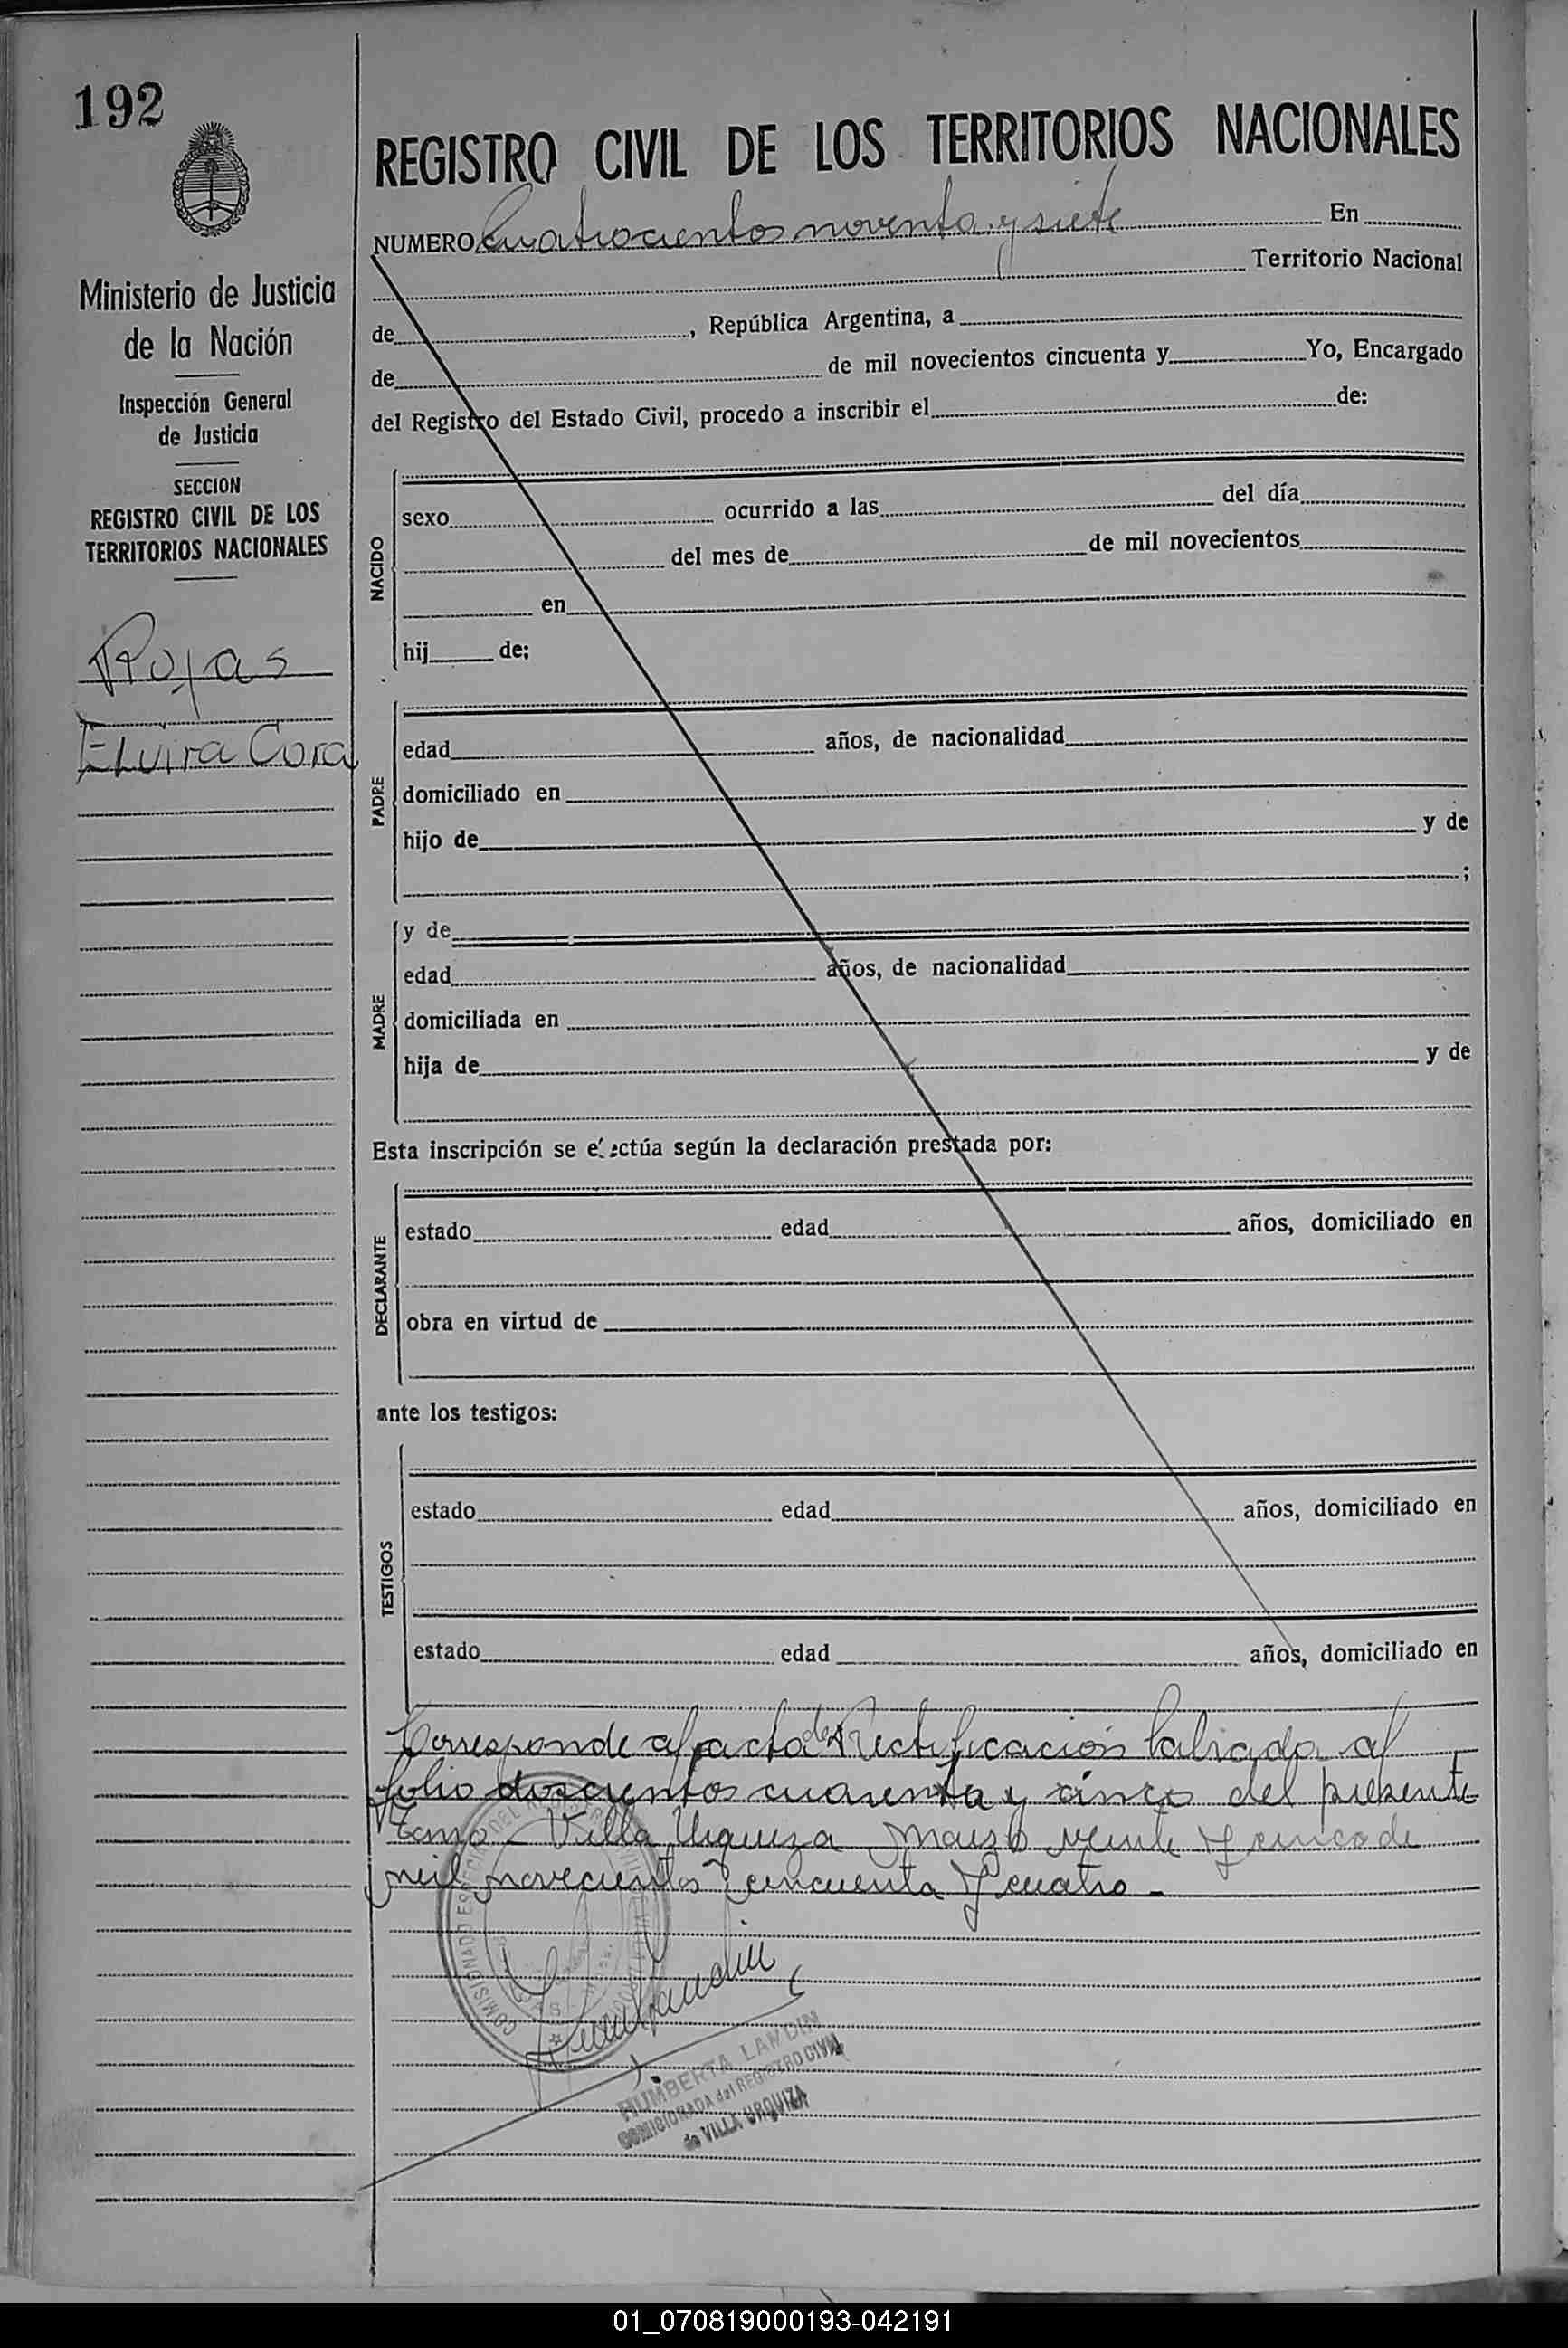 192
Ministerio de Justicia
de la Nación
Inspección General
de Justicia
SECCION
REGISTRO CIVIL DE LOS
TERRITORIOS NACIONALES
Rojas
Elvira Cora
REGISTRO CIVIL DE LOS TERRITORIOS NACIONALES
NUMERO Cuatrocientos noventa y siete En
Territorio Nacional
de , República Argentina, a
de de mil novecientos cincuenta y Yo, Encargado
del Registro del Estado Civil, procedo a inscribir el de:
NACIDO
sexo ocurrido a las del día
del mes de de mil novecientos
en
hij de:
PADRE
edad años, de nacionalidad
domiciliado en
hijo de y de
;
MADRE
y de
edad años, de nacionalidad
domiciliada en
hija de y de
Esta inscripción se efectúa según la declaración prestada por:
DECLARANTE
estado edad años, domiciliado en
obra en virtud de
ante los testigos:
TESTIGOS
estado edad años, domiciliado en
estado edad años, domiciliado en
Corresponde al acta de Rectificación labrada al
folio doscientos cuarenta y cinco del presente
Tomo - Villa Urquiza marzo veinte y cinco de
mil novecientos cincuenta y cuatro -
HUMBERTA LANDIN
COMISIONADA del REGISTRO CIVIL
de VILLA URQUIZA
01_070819000193-042191